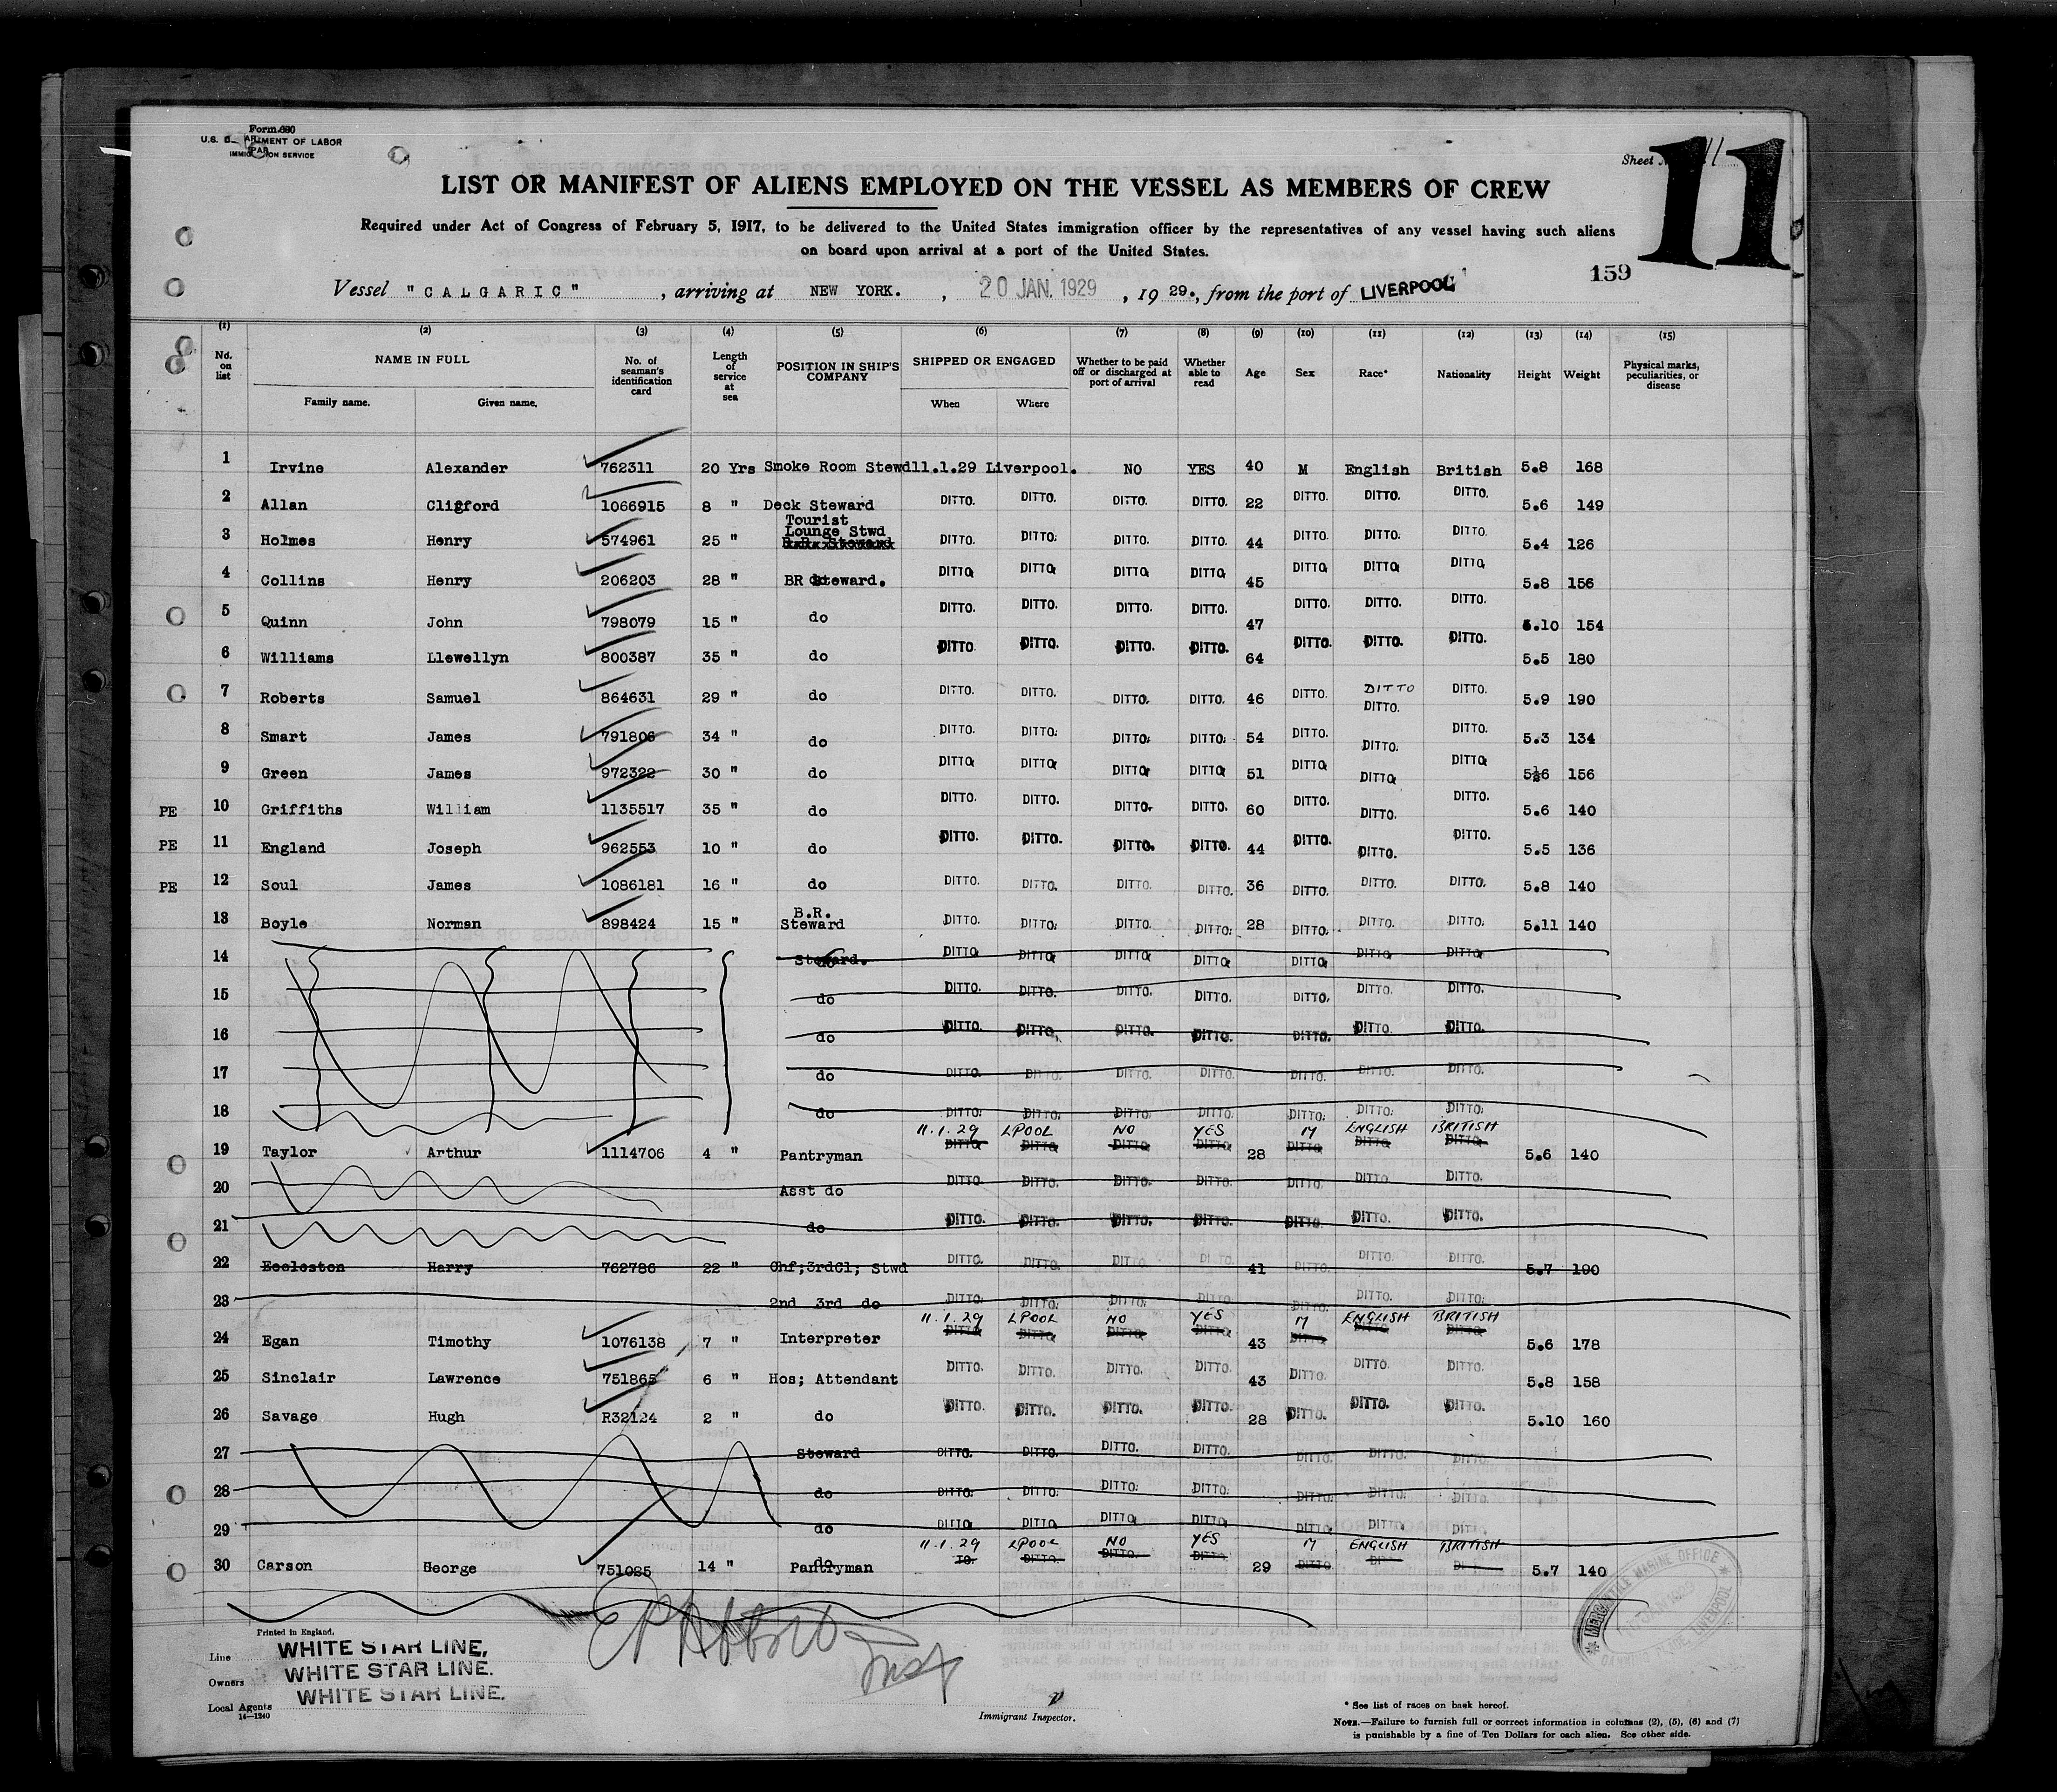 Form 680
U.S. DEPARTMENT OF LABOR
IMMIGRATION SERVICE
Sheet No. 11
11
LIST OR MANIFEST OF ALIENS EMPLOYED ON THE VESSEL AS MEMBERS OF CREW
Required under Act of Congress of February 5, 1917, to be delivered to the United States immigration officer by the representatives of any vessel having such aliens
on board upon arrival at a port of the United States.
159
Vessel "CALGARIC", arriving at NEW YORK., 20 JAN. 1929, 19 29., from the port of LIVERPOOL
(1) (2) (3) (4) (5) (6) (7) (8) (9) (10) (11) (12) (13) (14) (15)
No. on list NAME IN FULL Family name. Given name. No. of seaman's identification card Length of service at sea POSITION IN SHIP'S COMPANY SHIPPED OR ENGAGED When Where Whether to be paid off or discharged at port of arrival Whether able to read Age Sex Race* Nationality Height Weight Physical marks, peculiarities, or disease
1 Irvine Alexander 762311 20 Yrs Smoke Room Stewd 11.1.29 Liverpool. NO YES 40 M English British 5.8 168
2 Allan Cligford 1066915 8 " Deck Steward DITTO. DITTO. DITTO. DITTO. 22 DITTO. DITTO. DITTO. 5.6 149
3 Holmes Henry 574961 25 " Tourist Lounge Stwd DITTO. DITTO. DITTO. DITTO. 44 DITTO. DITTO. DITTO. 5.4 126
4 Collins Henry 206203 28 " BR Steward. DITTO DITTO DITTO DITTO 45 DITTO DITTO DITTO 5.8 156
5 Quinn John 798079 15 " do DITTO. DITTO. DITTO. DITTO. 47 DITTO. DITTO. DITTO. 5.10 154
6 Williams Llewellyn 800387 35 " do DITTO. DITTO. DITTO. DITTO. 64 DITTO. DITTO. DITTO. 5.5 180
7 Roberts Samuel 864631 29 " do DITTO. DITTO. DITTO. DITTO. 46 DITTO. DITTO DITTO. DITTO. 5.9 190
8 Smart James 791806 34 " do DITTO. DITTO. DITTO. DITTO. 54 DITTO. DITTO. DITTO. 5.3 134
9 Green James 972322 30 " do DITTO DITTO DITTO DITTO 51 DITTO DITTO DITTO 5½6 156
PE 10 Griffiths William 1135517 35 " do DITTO. DITTO. DITTO. DITTO. 60 DITTO. DITTO. DITTO. 5.6 140
PE 11 England Joseph 962553 10 " do DITTO. DITTO. DITTO. DITTO. 44 DITTO. DITTO. DITTO. 5.5 136
PE 12 Soul James 1086181 16 " do DITTO. DITTO. DITTO. DITTO. 36 DITTO. DITTO. DITTO. 5.8 140
13 Boyle Norman 898424 15 " B.R. Steward DITTO. DITTO. DITTO. DITTO. 28 DITTO. DITTO. DITTO. 5.11 140
14 Steward. do DITTO DITTO DITTO DITTO DITTO DITTO DITTO
15 do DITTO. DITTO. DITTO. DITTO. DITTO. DITTO. DITTO.
16 do DITTO. DITTO. DITTO. DITTO. DITTO. DITTO. DITTO.
17 do DITTO. DITTO. DITTO. DITTO. DITTO. DITTO. DITTO.
18 do DITTO. DITTO. DITTO. DITTO. DITTO. DITTO. DITTO.
11.1.29 LPOOL NO YES M ENGLISH BRITISH
19 Taylor Arthur 1114706 4 " Pantryman DITTO DITTO DITTO DITTO 28 DITTO DITTO DITTO 5.6 140
20 Asst do DITTO. DITTO. DITTO. DITTO. DITTO. DITTO. DITTO.
21 do DITTO. DITTO. DITTO. DITTO. DITTO. DITTO. DITTO.
22 Eccleston Harry 762786 22 " Chf;3rdCl; Stwd DITTO. DITTO. DITTO. DITTO. 41 DITTO. DITTO. DITTO. 5.7 190
23 2nd 3rd do DITTO. DITTO. DITTO. DITTO. DITTO. DITTO. DITTO.
11.1.29 LPOOL NO YES M ENGLISH BRITISH
24 Egan Timothy 1076138 7 " Interpreter DITTO DITTO DITTO DITTO 43 DITTO DITTO DITTO 5.6 178
25 Sinclair Lawrence 751865 6 " Hos; Attendant DITTO. DITTO. DITTO. DITTO. 43 DITTO. DITTO. DITTO. 5.8 158
26 Savage Hugh R32124 2 " do DITTO. DITTO. DITTO. DITTO. 28 DITTO. DITTO. DITTO. 5.10 160
27 Steward DITTO. DITTO. DITTO. DITTO. DITTO. DITTO. DITTO.
28 do DITTO. DITTO. DITTO. DITTO. DITTO. DITTO. DITTO.
29 do DITTO DITTO DITTO DITTO DITTO DITTO DITTO
11.1.29 LPOOL NO YES M ENGLISH BRITISH
30 Carson George 751085 14 " do Pantryman DITTO. DITTO. DITTO. 29 DITTO 5.7 140
Printed in England.
Line WHITE STAR LINE,
Owners WHITE STAR LINE.
Local Agents WHITE STAR LINE.
14—1240
Immigrant Inspector.
MERCANTILE MARINE OFFICE
LIVERPOOL
* See list of races on back hereof.
NOTE.—Failure to furnish full or correct information in columns (2), (5), (6) and (7)
is punishable by a fine of Ten Dollars for each alien. See other side.